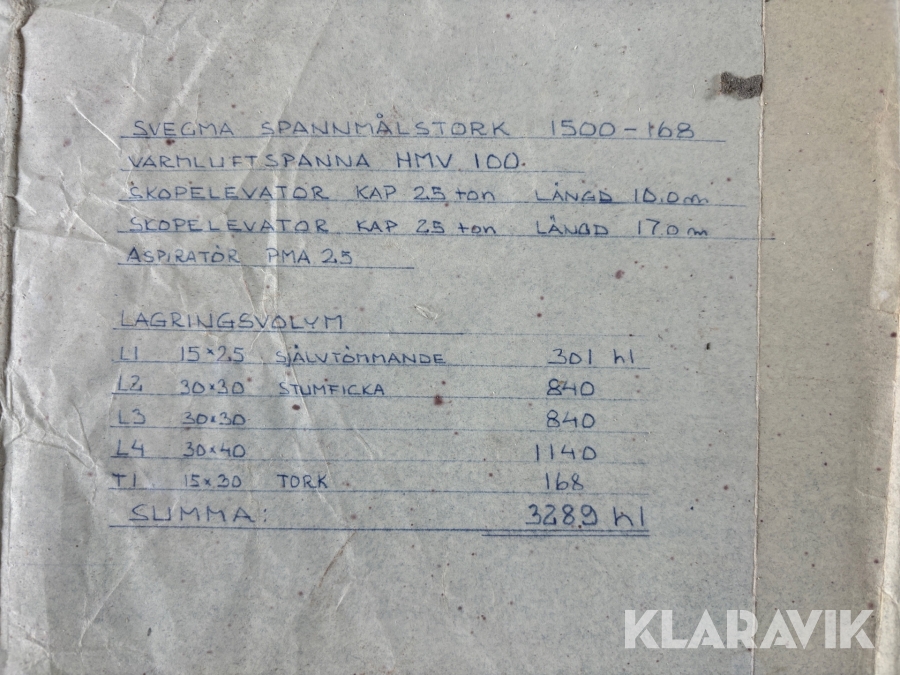 SVEGMA SPANNMÅLSTORK 1500-168
VARMLUFTSPANNA HMV 100.
SKOPELEVATOR KAP 25 ton LÄNGD 10.0 m
SKOPELEVATOR KAP 25 ton LÄNGD 17.0 m
ASPIRATÖR PMA 25
LAGRINGSVOLYM
L1 15×25 SJÄLVTÖMMANDE 301 hl
L2 30×30 STUMFICKA 840
L3 30×30 840
L4 30×40 1140
T1 15×30 TORK 168
SUMMA: 3289 hl
KLARAVIK